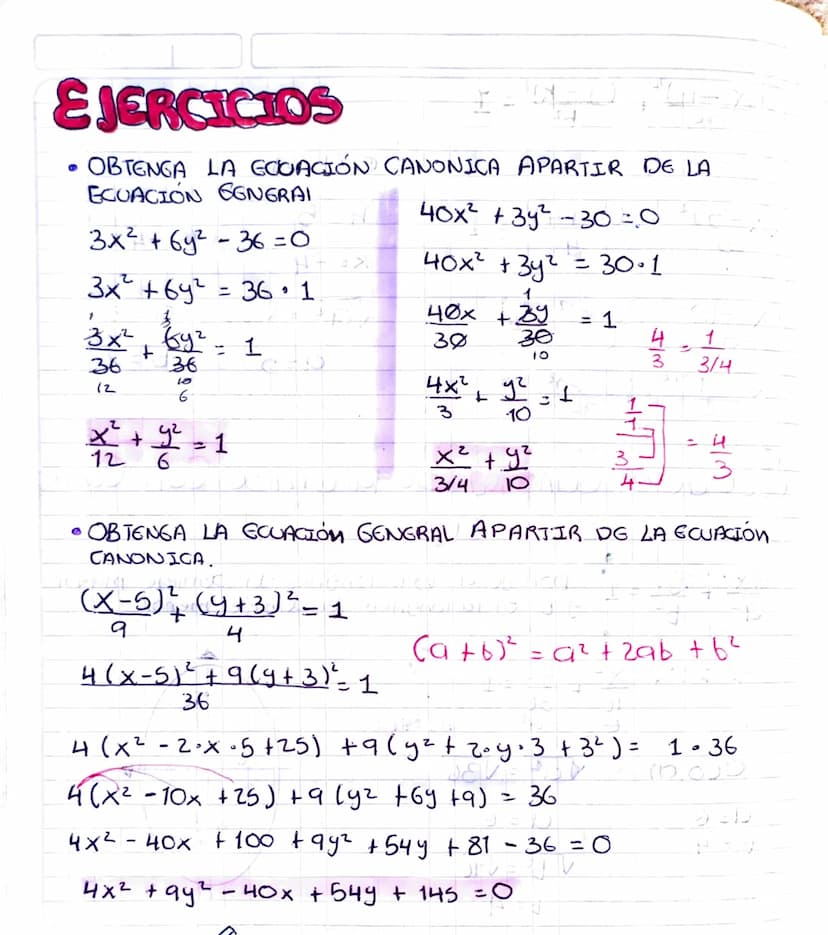 EJERCICIOS
• OBTENGA LA ECUACIÓN CANONICA APARTIR DE LA
ECUACIÓN GENERAL
3x² + 6y² - 36 = 0
3x² + 6y² = 36 · 1
3x²/36 + 6y²/36 = 1
12 6
x²/12 + y²/6 = 1
40x² + 3y² - 30 = 0
40x² + 3y² = 30 · 1
40x/30 + 3y/30 = 1
10
4x²/3 + y²/10 = 1
x²/3/4 + y²/10
4/3 = 1/3/4
1/1/3/4 = 4/3
• OBTENGA LA ECUACIÓN GENERAL APARTIR DE LA ECUACIÓN
CANONICA.
(x-5)²/9 + (y+3)²/4 = 1
(a + b)² = a² + 2ab + b²
4(x-5)² + 9(y+3)²/36 = 1
4(x² - 2·x·5 + 25) + 9(y² + 2·y·3 + 3²) = 1 · 36
4(x² - 10x + 25) + 9(y² + 6y + 9) = 36
4x² - 40x + 100 + 9y² + 54y + 81 - 36 = 0
4x² + 9y² - 40x + 54y + 145 = 0